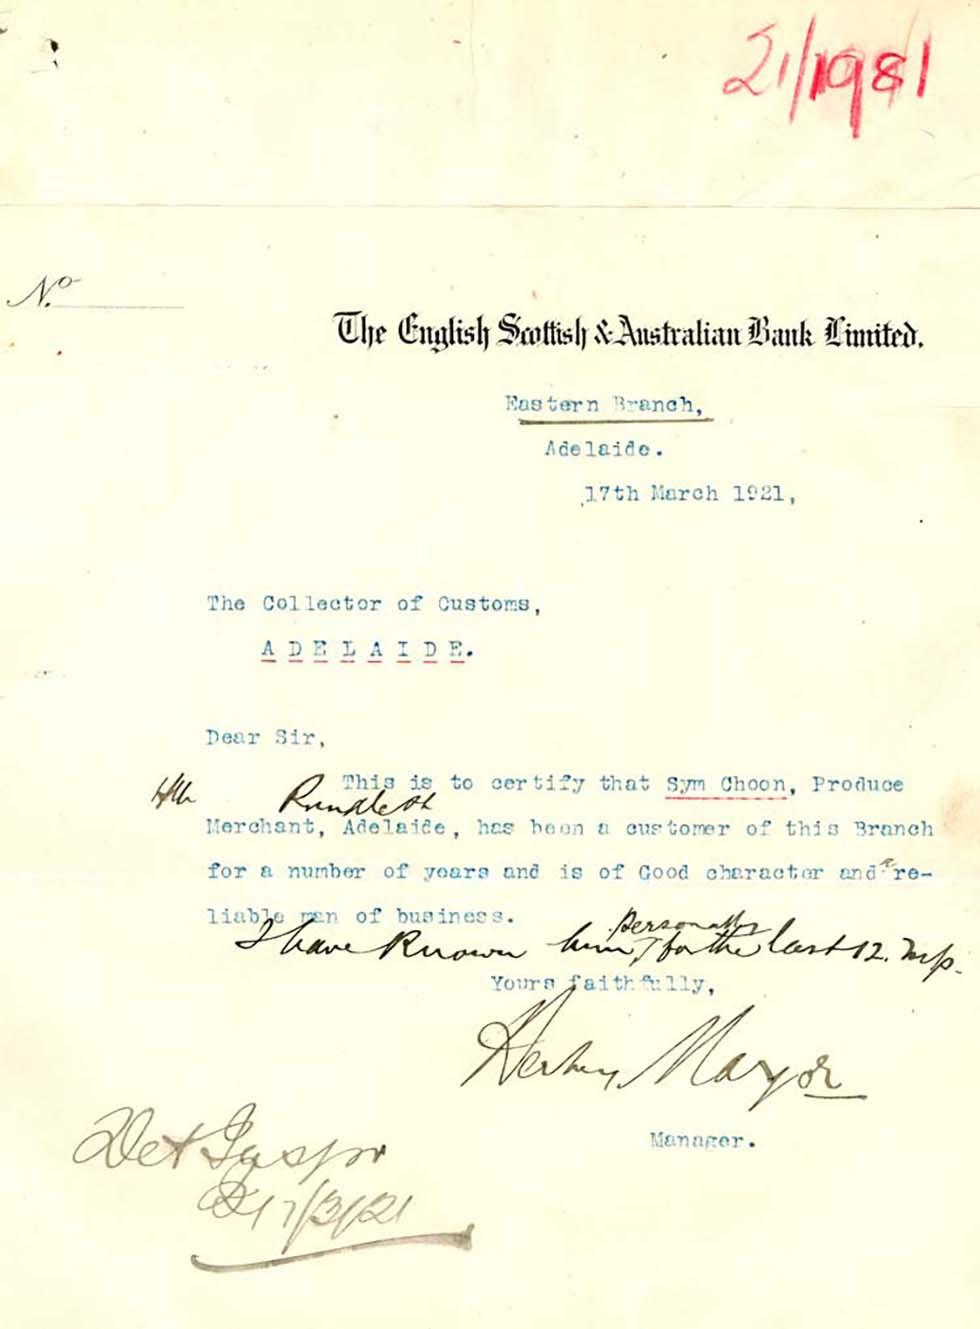 21/1981
No
The English Scottish & Australian Bank Limited.
Eastern Branch,
Adelaide.
17th March 1921,
The Collector of Customs,
A D E L A I D E.
Dear Sir,
This is to certify that Sym Choon, Produce
HM Rundle St
Merchant, Adelaide, has been a customer of this Branch
for a number of years and is of Good character and a re-
liable man of business.
I have known him personally for the last 12
Yours faithfully,
Mayor
Manager.
Det Inspr
17/3/21